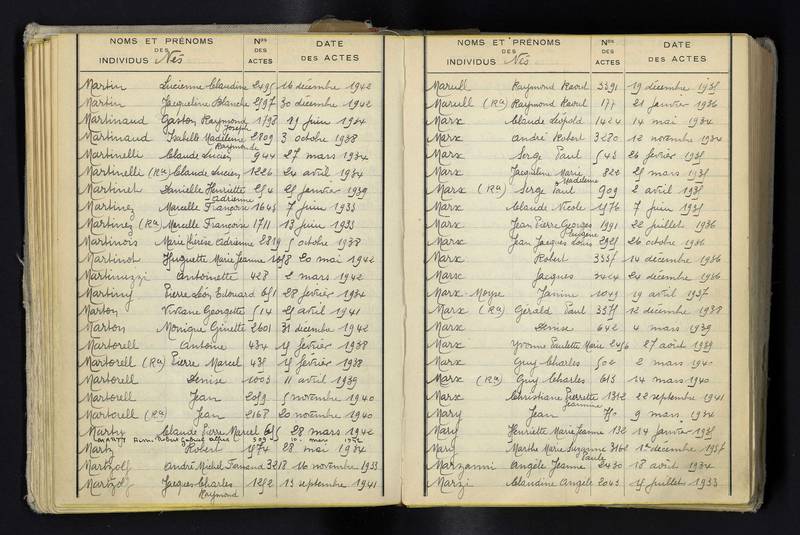 NOMS ET PRÉNOMS
DES
INDIVIDUS Nés
Nos
DES
ACTES
DATE
DES ACTES
Martin Lucienne Claudine 2495 16 décembre 1942
Martin Jacqueline Blanche 2597 30 décembre 1942
Martinaud Gaston Raymond 1598 19 juin 1934
Joseph
Martinaud Isabelle Madeleine 2809 3 octobre 1938
Raymonde
Martinelle Claude Lucien 944 27 mars 1934
Martinelle (Ra) Claude Lucien 1226 24 avril 1934
Martinet Danielle Henriette 25 janvier 1939
Adrienne
Martinez Marcelle Françoise 1645 7 juin 1933
Martinez (Ra) Marcelle Françoise 1711 13 juin 1933
Martinois Marie Thérèse Adrienne 2819 5 octobre 1938
Martinot Huguette Marie Jeanne 1058 20 mai 1942
Martinuzzi Antoinette 428 2 mars 1942
Martiny Pierre Léon Edouard 651 28 février 1934
Marton Viviane Georgette 514 25 avril 1941
Marton Monique Ginette 2601 31 décembre 1942
Martorell Antoine 434 15 février 1938
Martorell (Ra) Pierre Marcel 435 15 février 1938
Martorell Denise 1003 11 avril 1939
Martorell Jean 2059 5 novembre 1940
Martorell (Ra) Jean 2168 20 novembre 1940
Claude Pierre Marcel 655 28 mars 1942
MARTY Robert Gabriel Alfred 509 10 mars 1942
Martz Robert 1574 28 mai 1934
Martzolf André Michel Fernand 3218 16 novembre 1933
Martzolf Jacques Charles 1252 13 septembre 1941
Raymond
NOMS ET PRÉNOMS
DES
INDIVIDUS Nés
Nos
DES
ACTES
DATE
DES ACTES
Marull Raymond Raoul 3391 19 décembre 1935
Marull (Ra) Raymond Raoul 177 21 janvier 1936
Marx Claude Léopold 1424 14 mai 1934
Marx André Robert 3280 12 novembre 1934
Marx Serge Paul 543 26 février 1935
Marx Jacqueline Marie 822 25 mars 1935
Madeleine
Marx (Ra) Serge Paul 909 2 avril 1935
Marx Claude Nicole 1576 7 juin 1935
Marx Jean Pierre Georges 1991 22 juillet 1936
Eugène
Marx Jean Jacques Louis 2925 26 octobre 1936
Marx Robert 3357 14 décembre 1936
Marx Jacques 24 décembre 1936
Marx-Moyse Janine 1049 19 avril 1937
Marx (Ra) Gérald Paul 3375 12 décembre 1938
Marx Denise 642 4 mars 1939
Marx Yvonne Paulette Marie 2456 27 août 1939
Marx Guy Charles 502 2 mars 1940
Marx (Ra) Guy Charles 613 14 mars 1940
Marx Christiane Pierrette 1312 22 septembre 1941
Jeannine
Mary Jean 770 9 mars 1934
Mary Henriette Marie Jeanne 132 14 janvier 1935
Mary Marthe Marie Suzanne 3162 1er décembre 1937
Paule
Marzanni Angèle Jeanne 2430 18 août 1934
Marzi Claudine Angèle 2043 15 juillet 1933